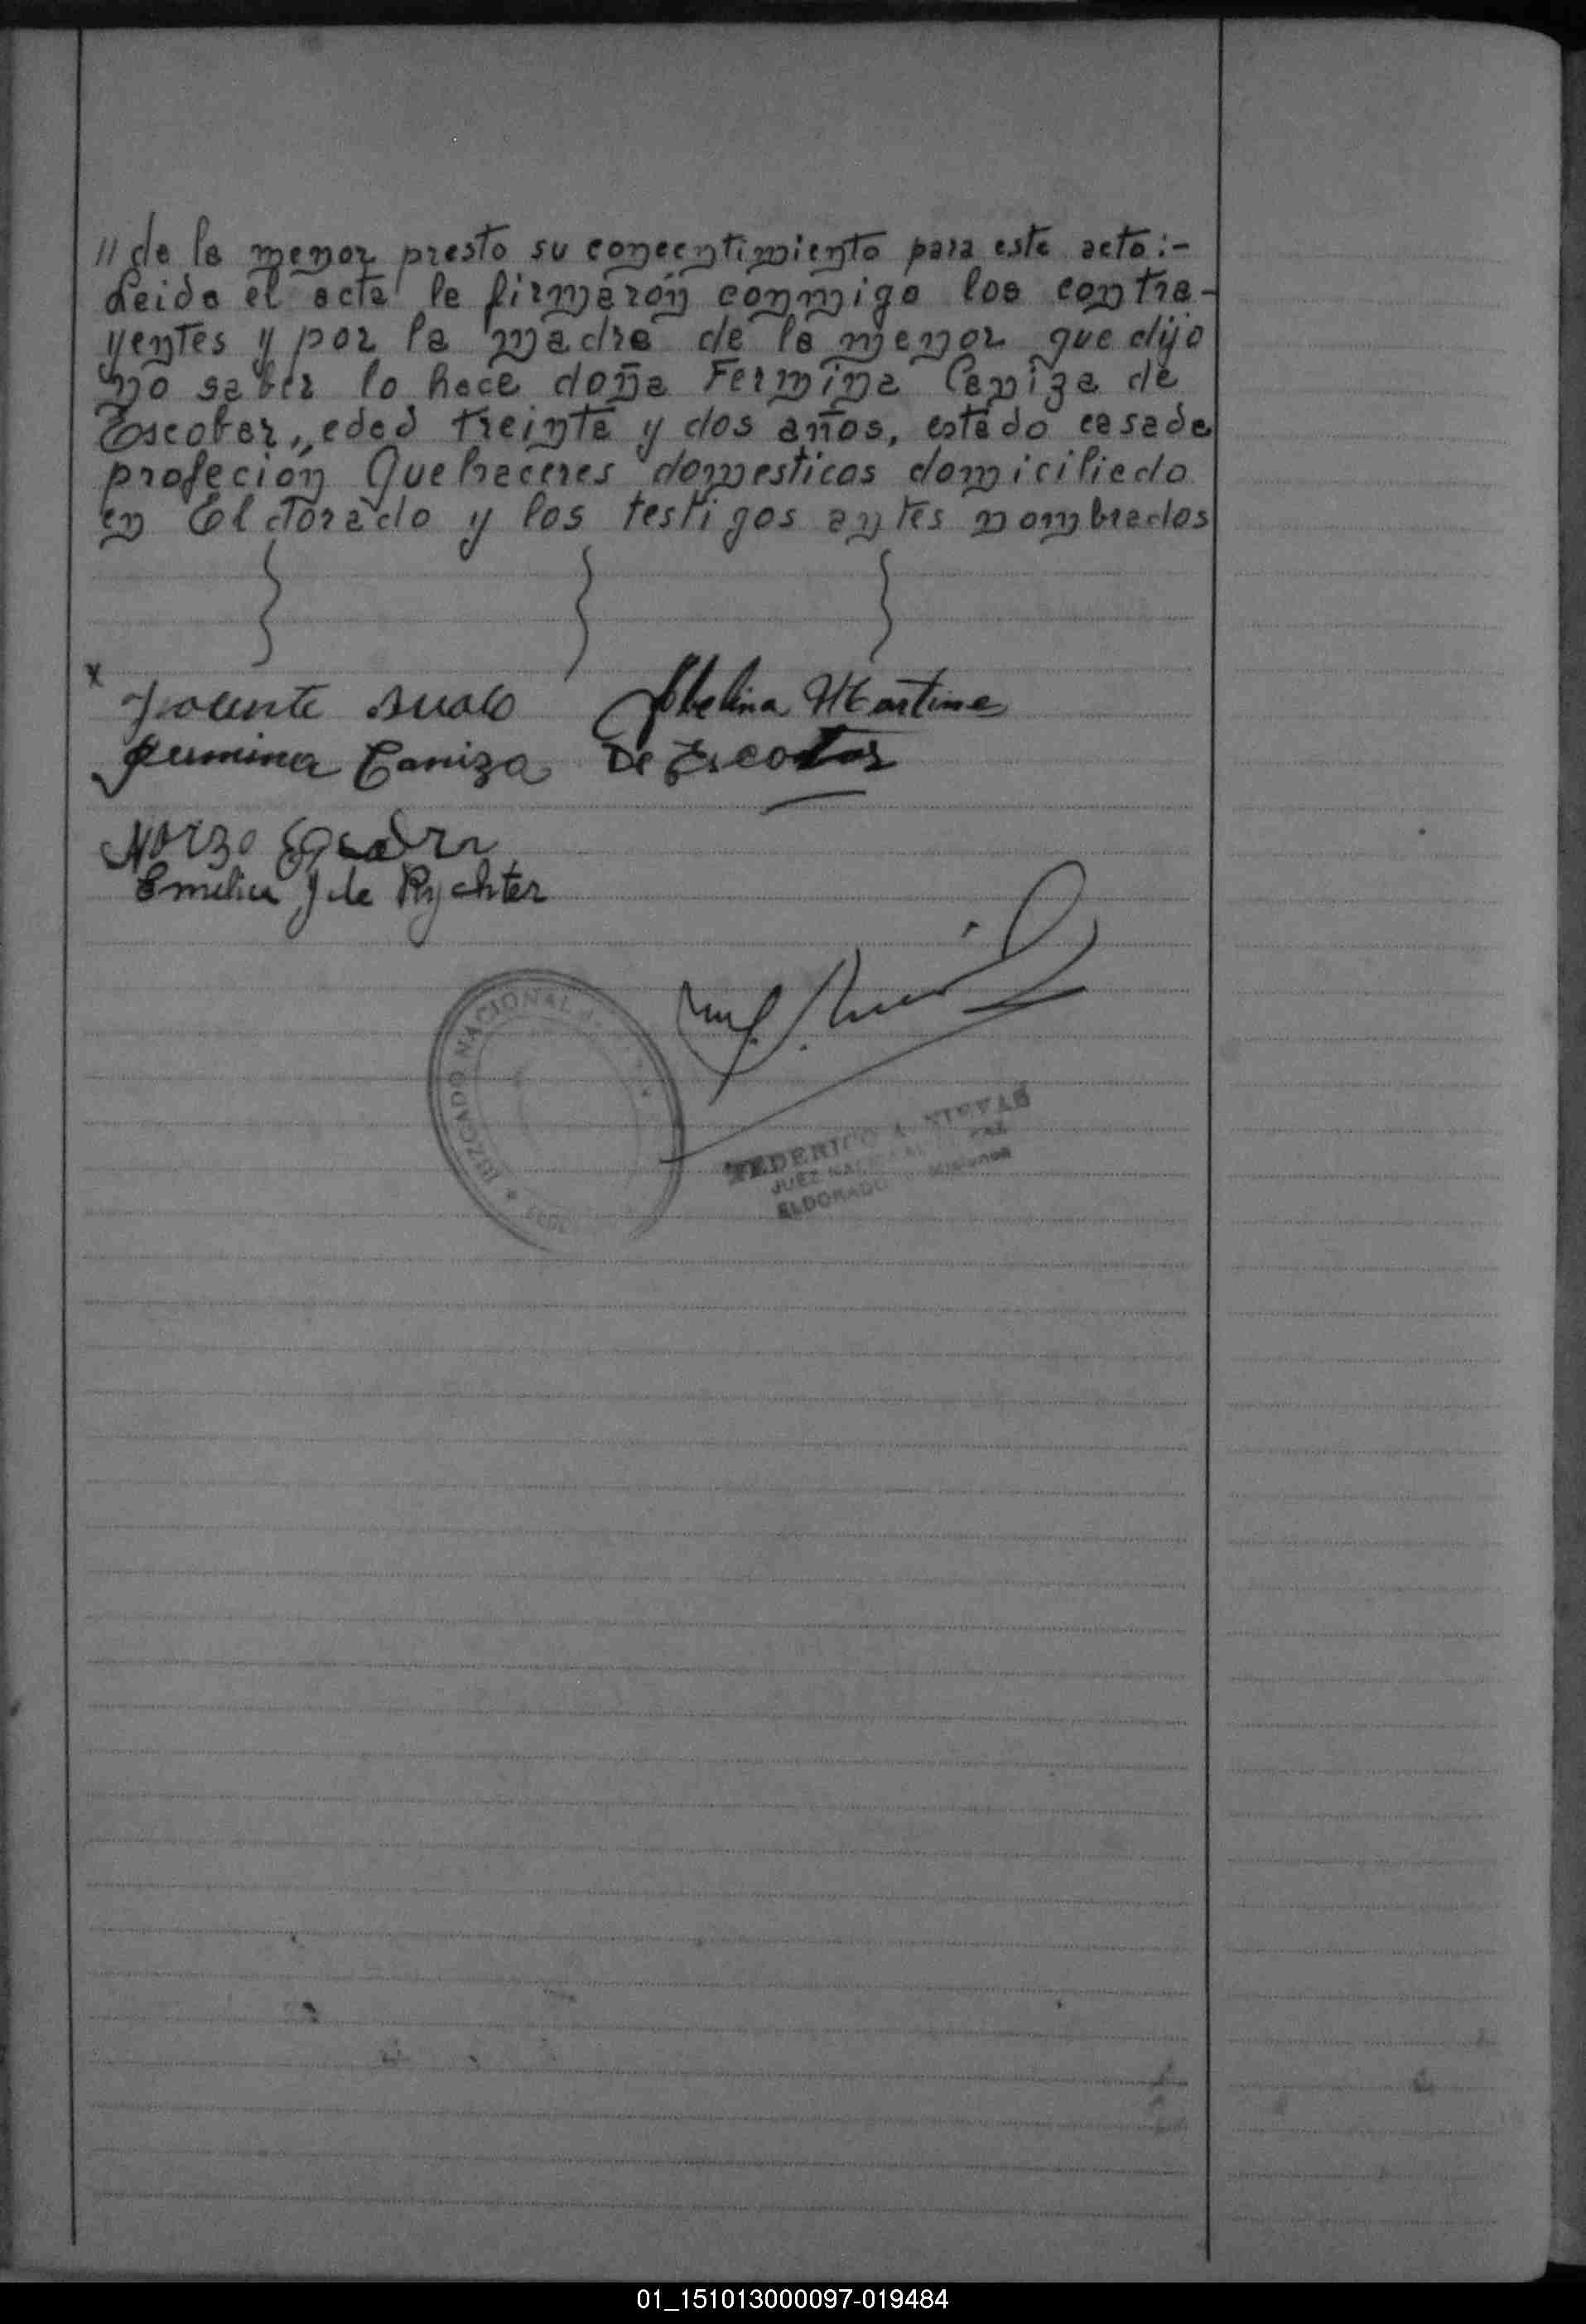 // de la menor presto su conecntimiento para este acto:-
Leida el acta la firmarón conmigo los contra-
yentes y por la madre de la menor que dijo
no saber lo hace doña Fermina Caniza de
Escobar,, edad treinta y dos años, estado casada
profeción Quehaceres domesticos domiciliado
en El dorado y los testigos antes nombrados
x
Abelina Martine
Fermina Caniza De Escobar
Emilia J de Rychter
JUZGADO NACIONAL
FEDERICO A. NIEVAS
JUEZ NACIONAL PAZ
ELDORADO Misiones
01_151013000097-019484